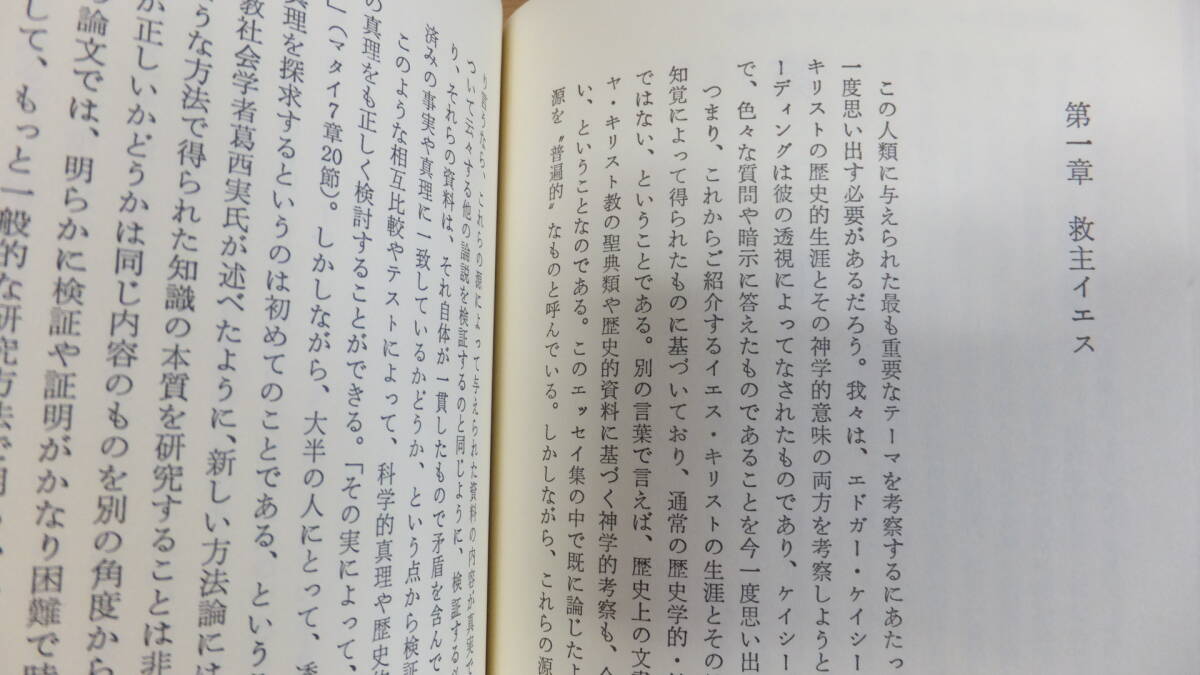 第一章　救主イエス
この人類に与えられた最も重要なテーマを考察するにあたっ
一度思い出す必要があるだろう。我々は、エドガー・ケイシー
キリストの歴史的生涯とその神学的意味の両方を考察しようと
ーディングは彼の透視によってなされたものであり、ケイシー
で、色々な質問や暗示に答えたものであることを今一度思い出
つまり、これからご紹介するイエス・キリストの生涯とその
知覚によって得られたものに基づいており、通常の歴史学的・
ではない、ということである。別の言葉で言えば、歴史上の文
ャ・キリスト教の聖典類や歴史的資料に基づく神学的考察も、
い、ということなのである。このエッセイ集の中で既に論じたよ
源を〝普遍的〟なものと呼んでいる。しかしながら、これらの源
り言うなら、これらの源によって与えられた資料の内容が真実で
ついて云々する他の論説を検証するのと同じように、検証する
り、それらの資料は、それ自体が一貫したもので矛盾を含んで
済みの事実や真理に一致しているかどうか、という点から検証
このような相互比較やテストによって、科学的真理や歴史
の真理をも正しく検討することができる。「その実によって、
」（マタイ7章20節）。しかしながら、大半の人にとって、
真理を探求するというのは初めてのことである、という
教社会学者葛西実氏が述べたように、新しい方法論には
うな方法で得られた知識の本質を研究することは非
が正しいかどうかは同じ内容のものを別の角度から
論文では、明らかに検証や証明がかなり困難で
して、もっと一般的な研究方法で